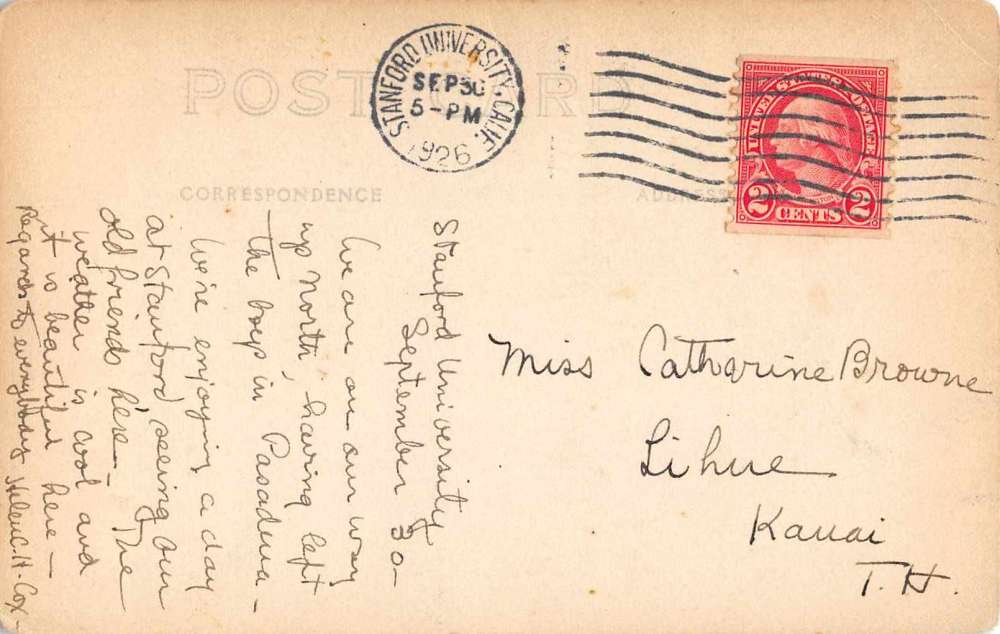 POST CARD
STANFORD UNIVERSITY, CALIF.
SEP 30
5-PM
1926
UNITED STATES POSTAGE
2 CENTS 2
CORRESPONDENCE
ADDRESS
Stanford University
September 30-
We are on our way
up north, having left
the boys in Pasadena-
We're enjoying a day
at Stanford, seeing our
old friends here- The
weather is cool and
it is beautiful here-
Regards to everybody Helen H. Cox-
Miss Catharine Browne
Lihue
Kauai
T.H.